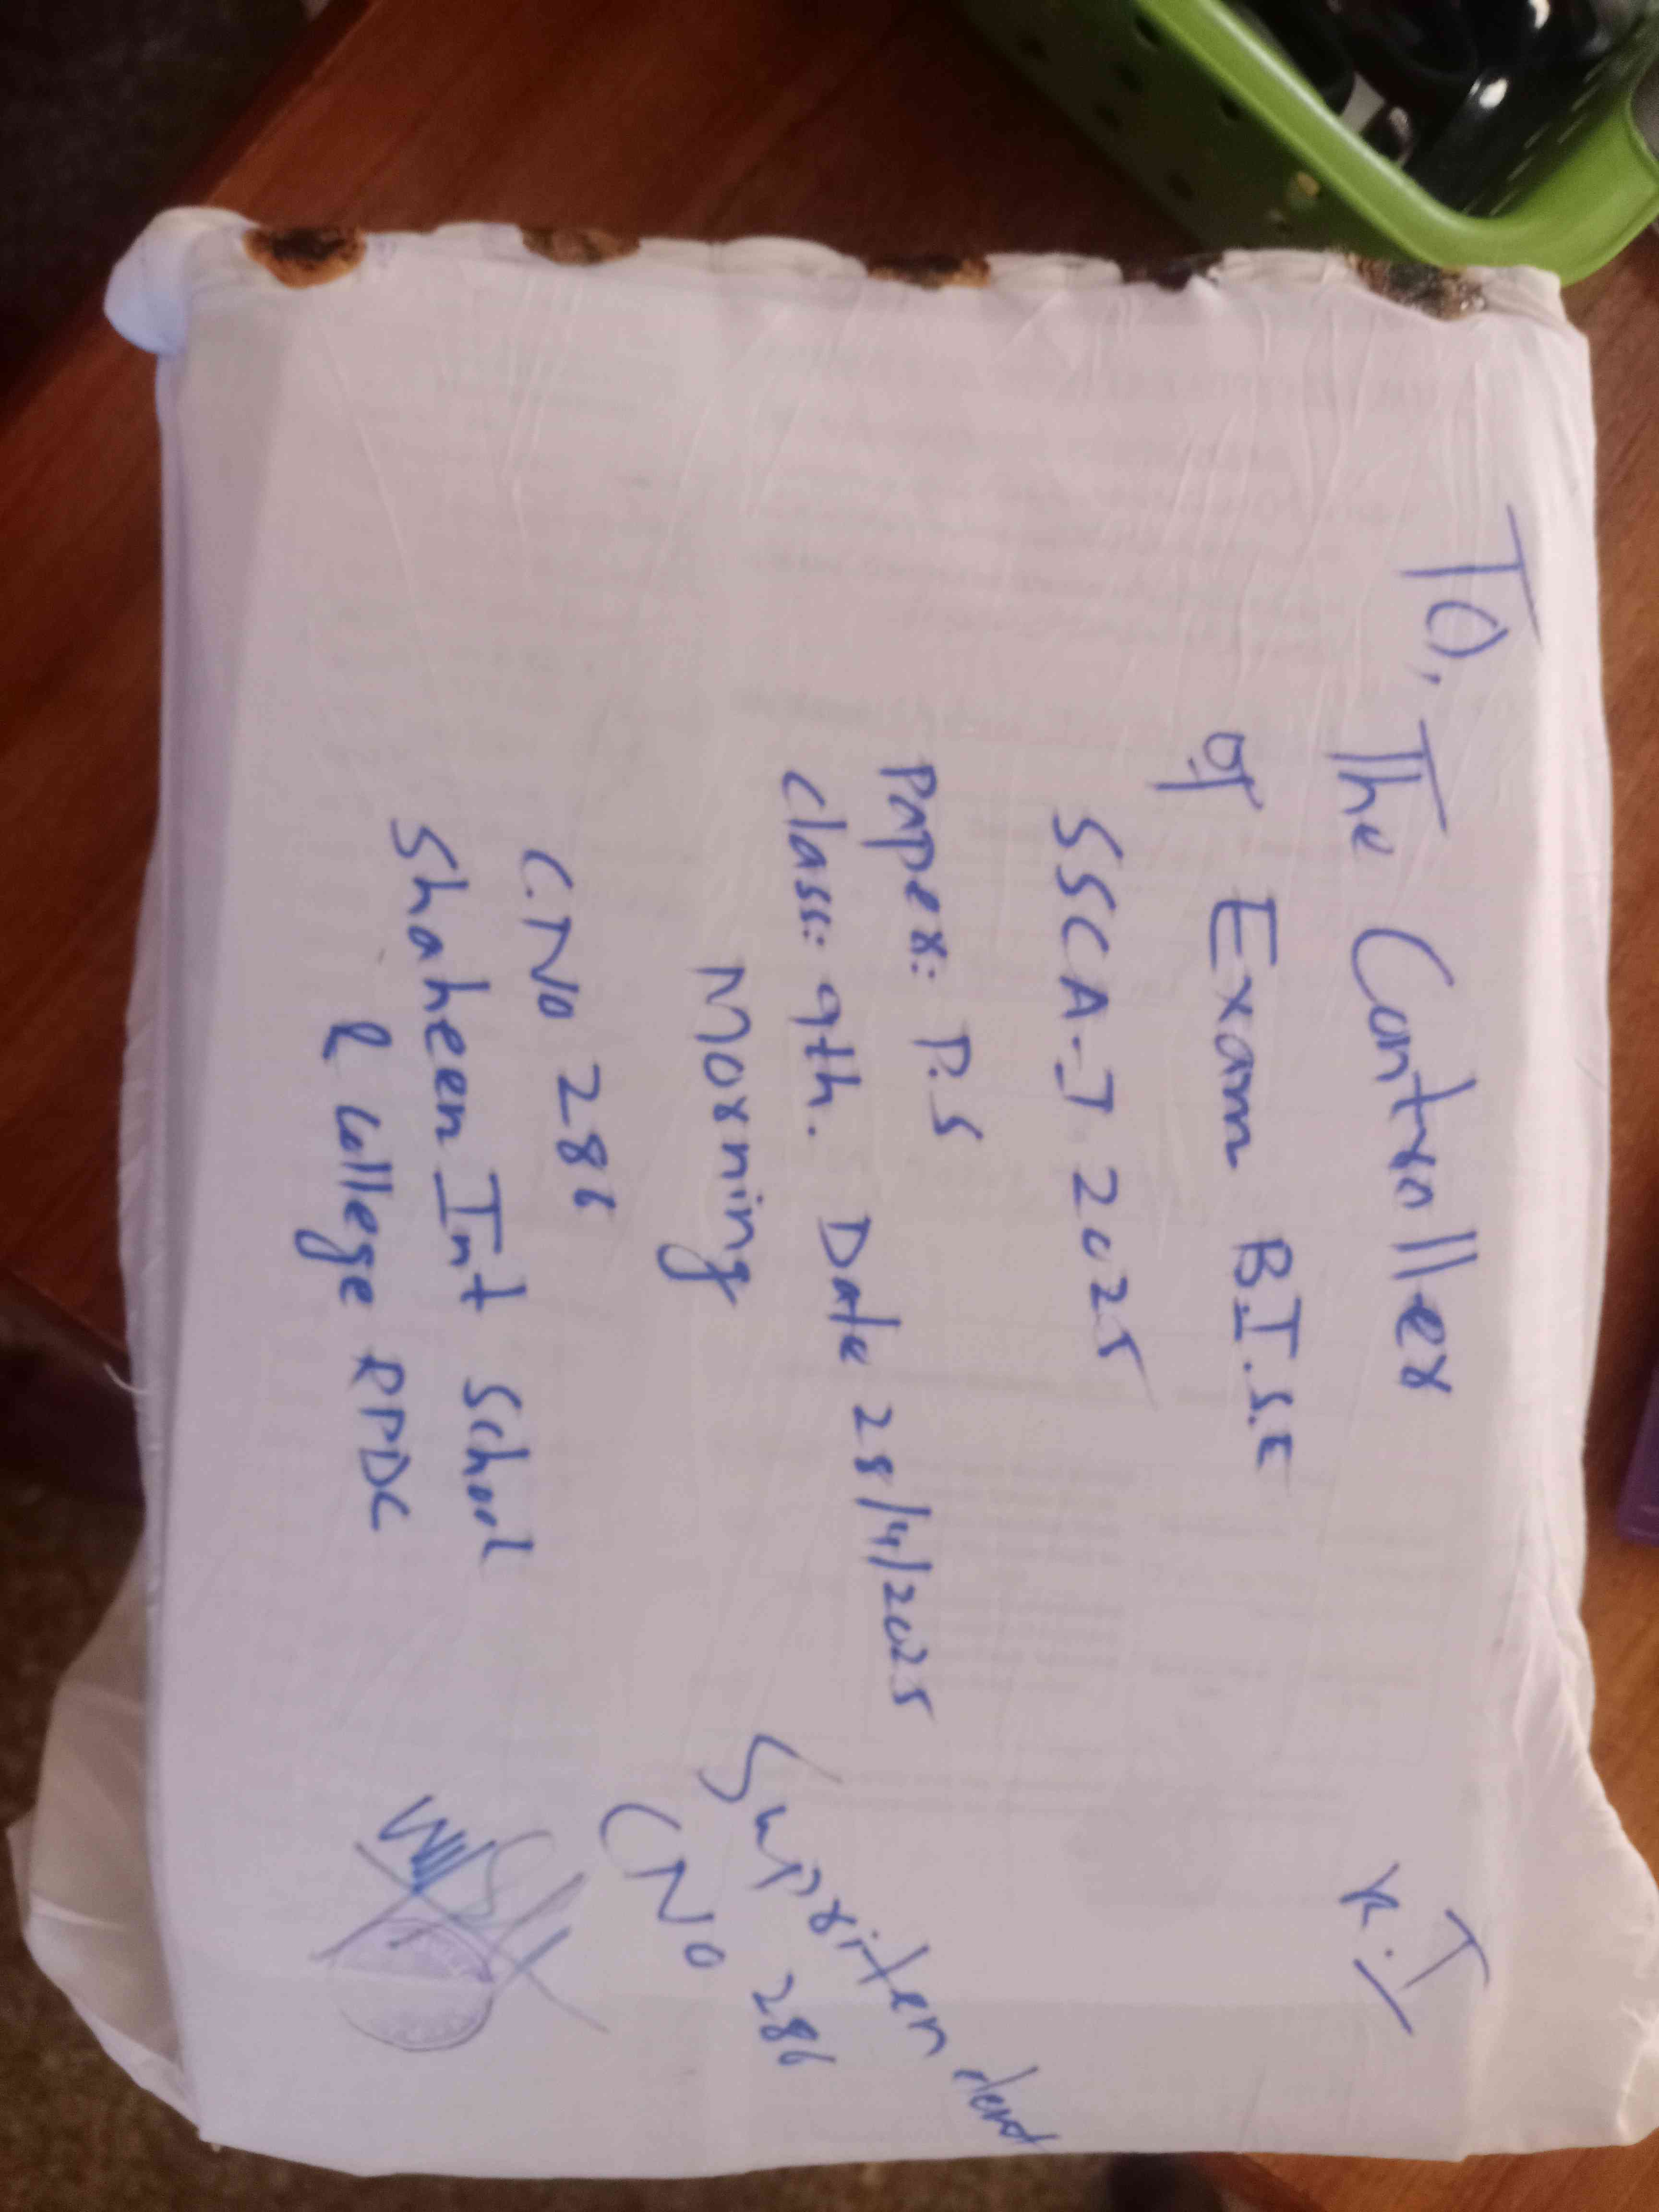 To,
The Controller
of Exam B.I.S.E
SSCA-I 2025
Paper: P.S
Class: 9th. Date 28/4/2025
Morning
C.No 286
Shaheen Int School
& College RPDC
Supritendent
CNo 286